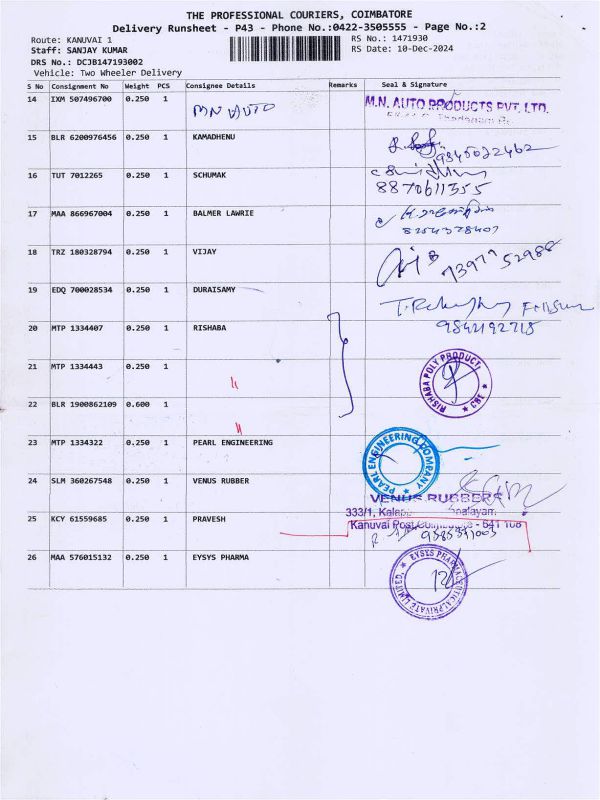 THE PROFESSIONAL COURIERS, COIMBATORE
Delivery Runsheet - P43 - Phone No.:0422-3505555 - Page No.:2
Route: KANUVAI 1
RS No.: 1471930
Staff: SANJAY KUMAR
RS Date: 10-Dec-2024
DRS No.: DCJB147193002
Vehicle: Two Wheeler Delivery
S No Consignment No Weight PCS Consignee Details Remarks Seal & Signature
14 IXM 507496700 0.250 1 MN AUTO M.N. AUTO PRODUCTS PVT. LTD.
15 BLR 6200976456 0.250 1 KAMADHENU
9345022462
16 TUT 7012265 0.250 1 SCHUMAK
8870611355
17 MAA 866967004 0.250 1 BALMER LAWRIE
18 TRZ 180328794 0.250 1 VIJAY
73977 52988
19 EDQ 700028534 0.250 1 DURAISAMY
9842192718
20 MTP 1334407 0.250 1 RISHABA
21 MTP 1334443 0.250 1 RISHABA POLY PRODUCT CBE
"
22 BLR 1900862109 0.600 1
"
23 MTP 1334322 0.250 1 PEARL ENGINEERING PEARL ENGINEERING COMPANY
24 SLM 360267548 0.250 1 VENUS RUBBER
VENUS RUBBERS
333/1,
25 KCY 61559685 0.250 1 PRAVESH Kanuvai Post, Coimbatore - 641 108
26 MAA 576015132 0.250 1 EYSYS PHARMA EYSYS PHARMACEUTICAL PRIVATE LIMITED